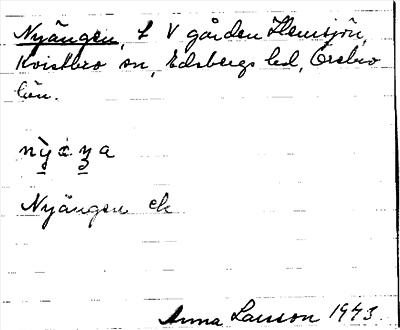 Nyängen, t V gården Hemsjön,
Kvistbro sn, Edsbergs hd, Örebro
län.
Nyängen ek
Anna Larsson 1943.